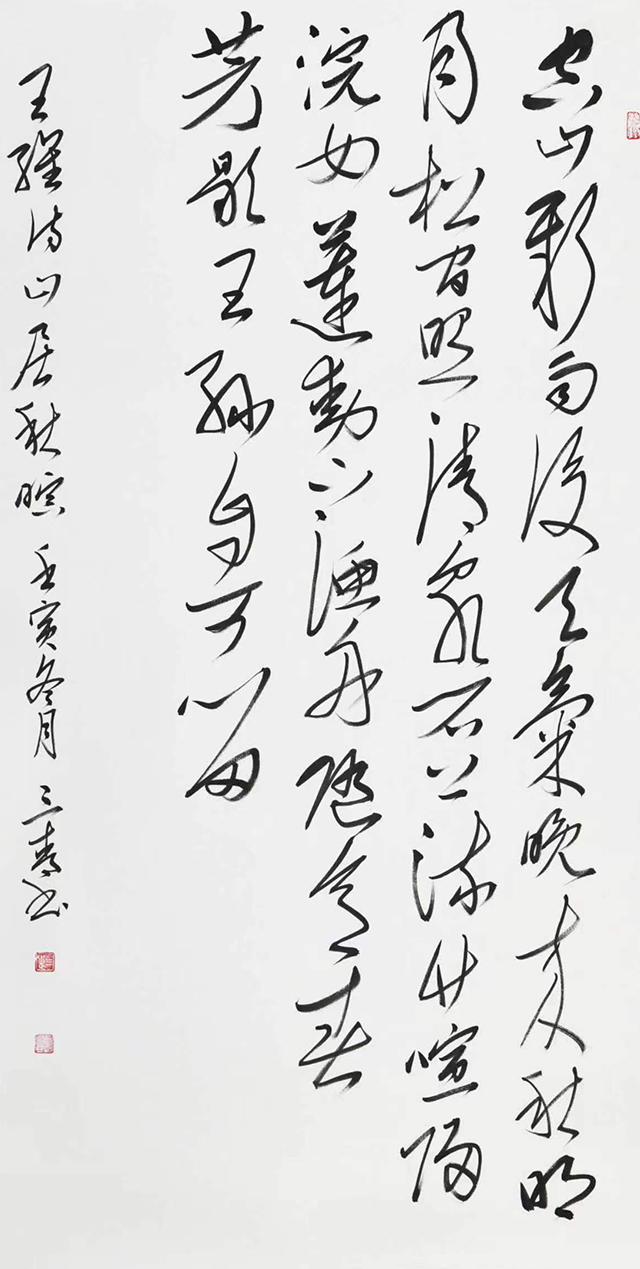 空山新雨後天氣晚來秋明
月松間照清泉石上流竹喧歸
浣女蓮動下漁舟隨意春
芳歇王孫自可留
王維詩山居秋暝 壬寅冬月 三